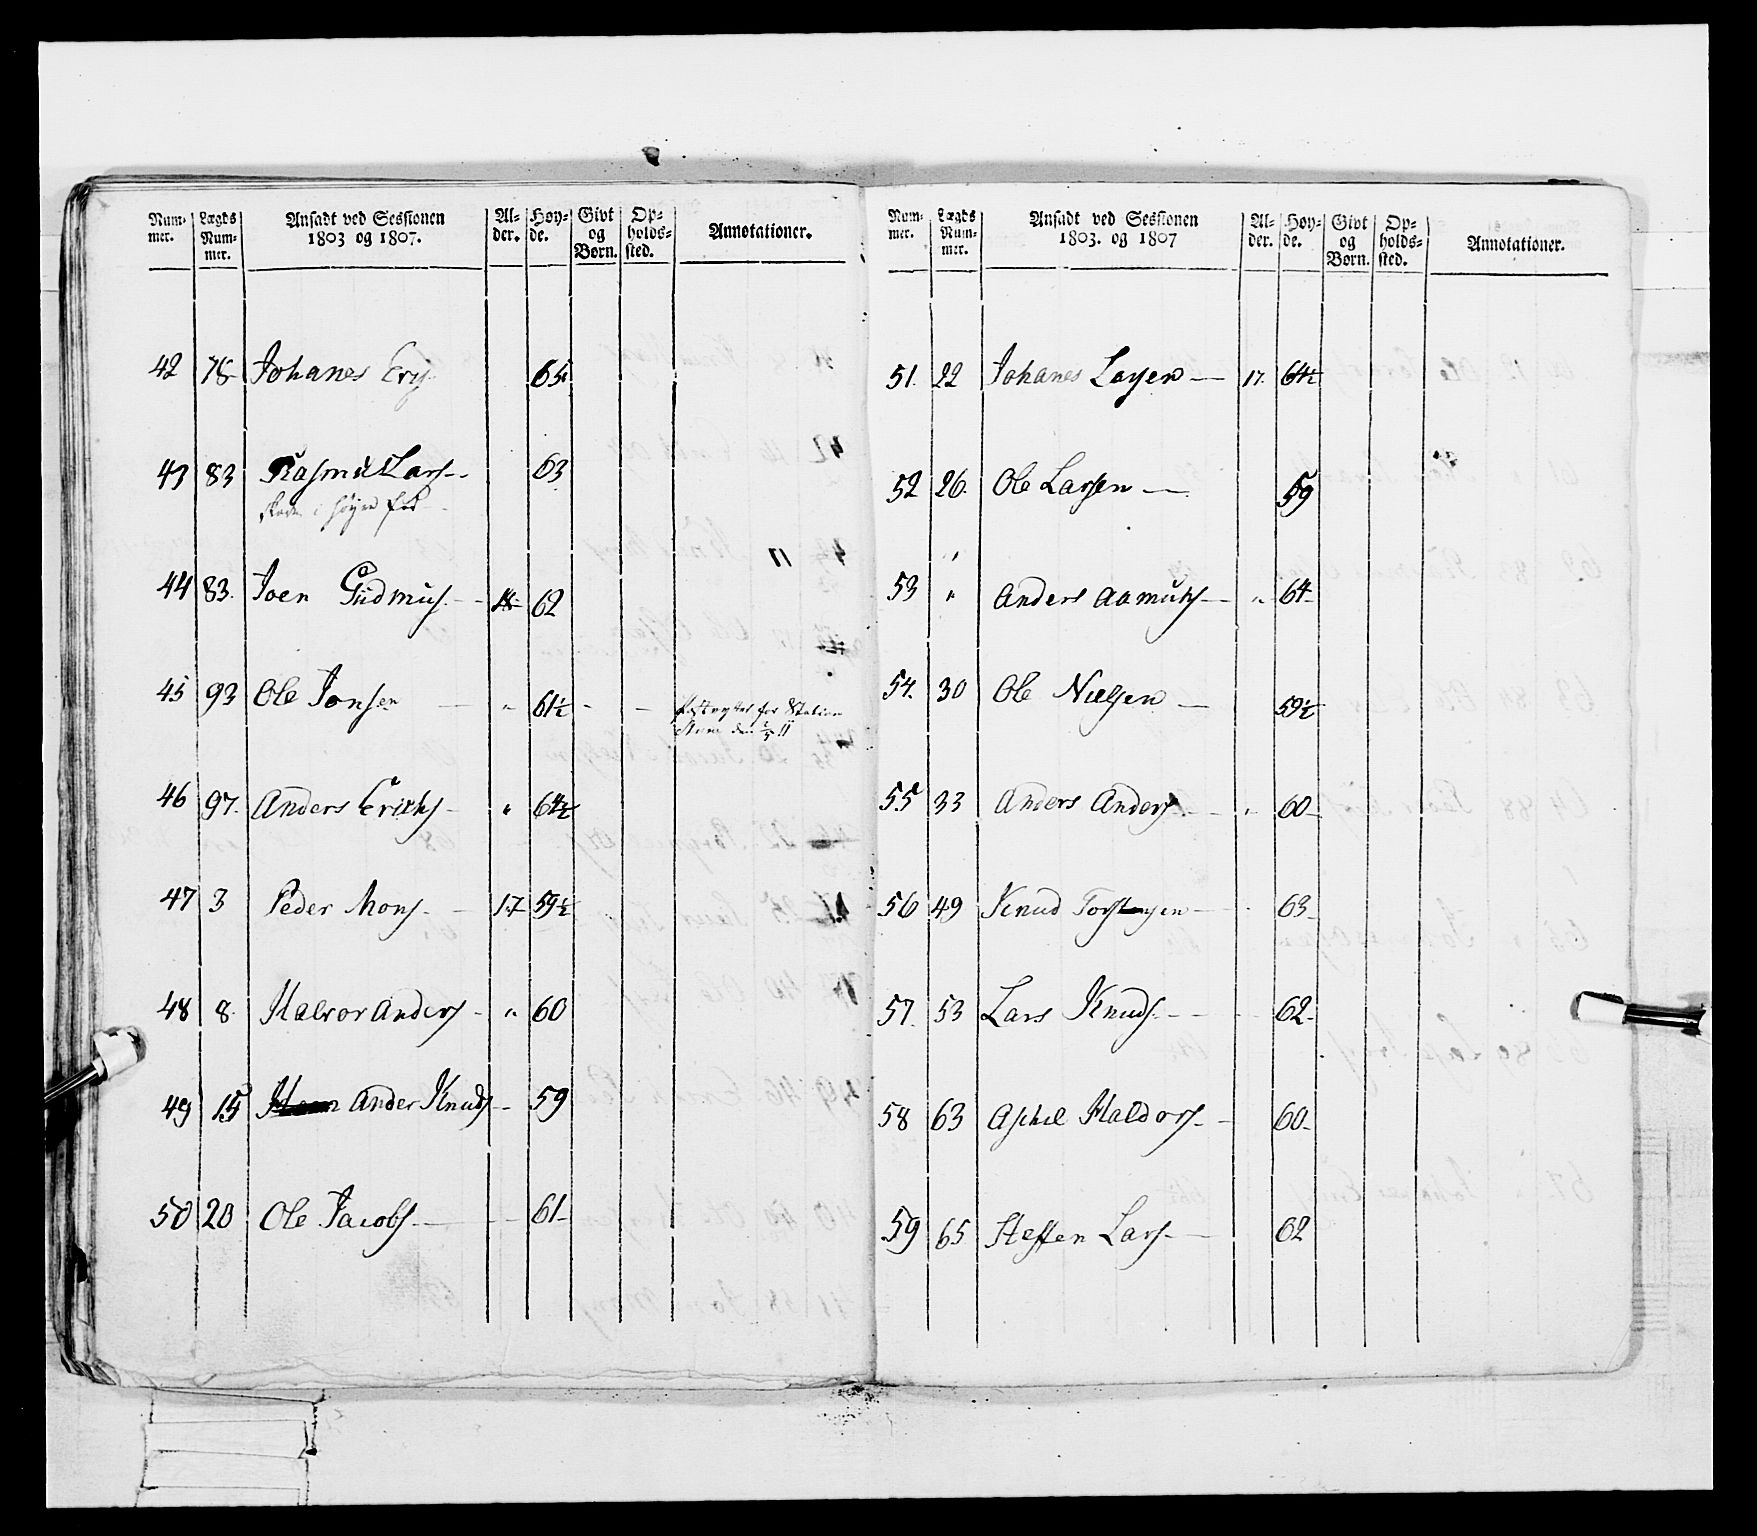 Num-
mer.
Lægds
Num-
mer.
Ansadt ved Sessionen
1803 og 1807.
Al-
der.
Høy-
de.
Givt
og
Børn.
Op-
holds-
sted.
Annotationer.
42 78 Johanes Erÿ 65
43 83 Rasmus Lars- 63
i høyre fod
44 83. Joen Gudmus. 18 62
45 93 Ole Jonsen " 61½
46 97. Anders Erichs - " 64½
47 3 Peder Mons. 17 59½
48 8 Halvor Anders - " 60
49 15 Ander Knuds - 59
50 20 Ole Jacobs. 61
Num-
mer.
Lægds
Num-
mer.
Ansadt ved Sessionen
1803. og 1807
Al-
der.
Høy-
de.
Givt
og
Børn.
Op-
holds-
sted.
Annotationer.
51. 22 Johanes Larsen — 17. 64½
52 26. Ole Larsen — 59
53 " Anders Aamunds — " 64
54. 30 Ole Nielsen — 59½
55 33 Anders Anders. " 60
56 49 Knud Torstensen 63
57. 53 Lars Knuds. 62
58 63 Aschel Haldors. 60
59 65 Steffen Lars. 62